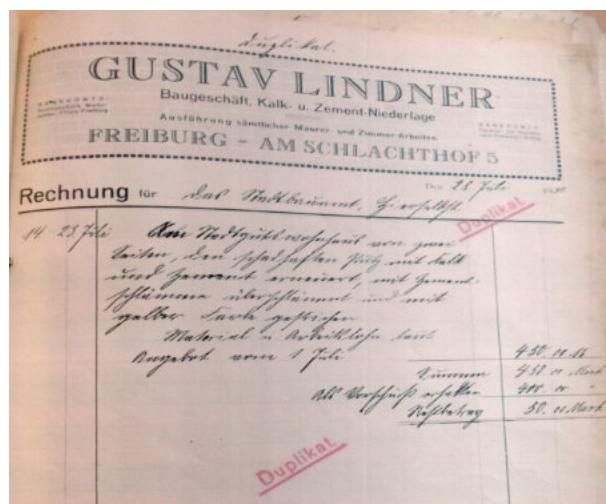 Duplikat.
GUSTAV LINDNER
Baugeschäft, Kalk- u. Zement-Niederlage
Ausführung sämtlicher Maurer- und Zimmer-Arbeiten
FREIBURG - AM SCHLACHTHOF 5
Den 28. Juli
Rechnung für das Stadtbauamt, hierselbst.
Duplikat
14 - 23 Juli Am Stadtgutswohnhaus von zwei
Seiten, den schadhaften Putz mit Kalk
und Zement erneuert, mit Zement-
schlämme überschlämmt und mit
gelber Farbe gestrichen
Material u Arbeitslohn laut
Angebot vom 1 Juli 450.00 M
Summa 450 00 Mark
Als Vorschuß erhalten 400. 00 "
Restbetrag 50. 00 Mark
Duplikat